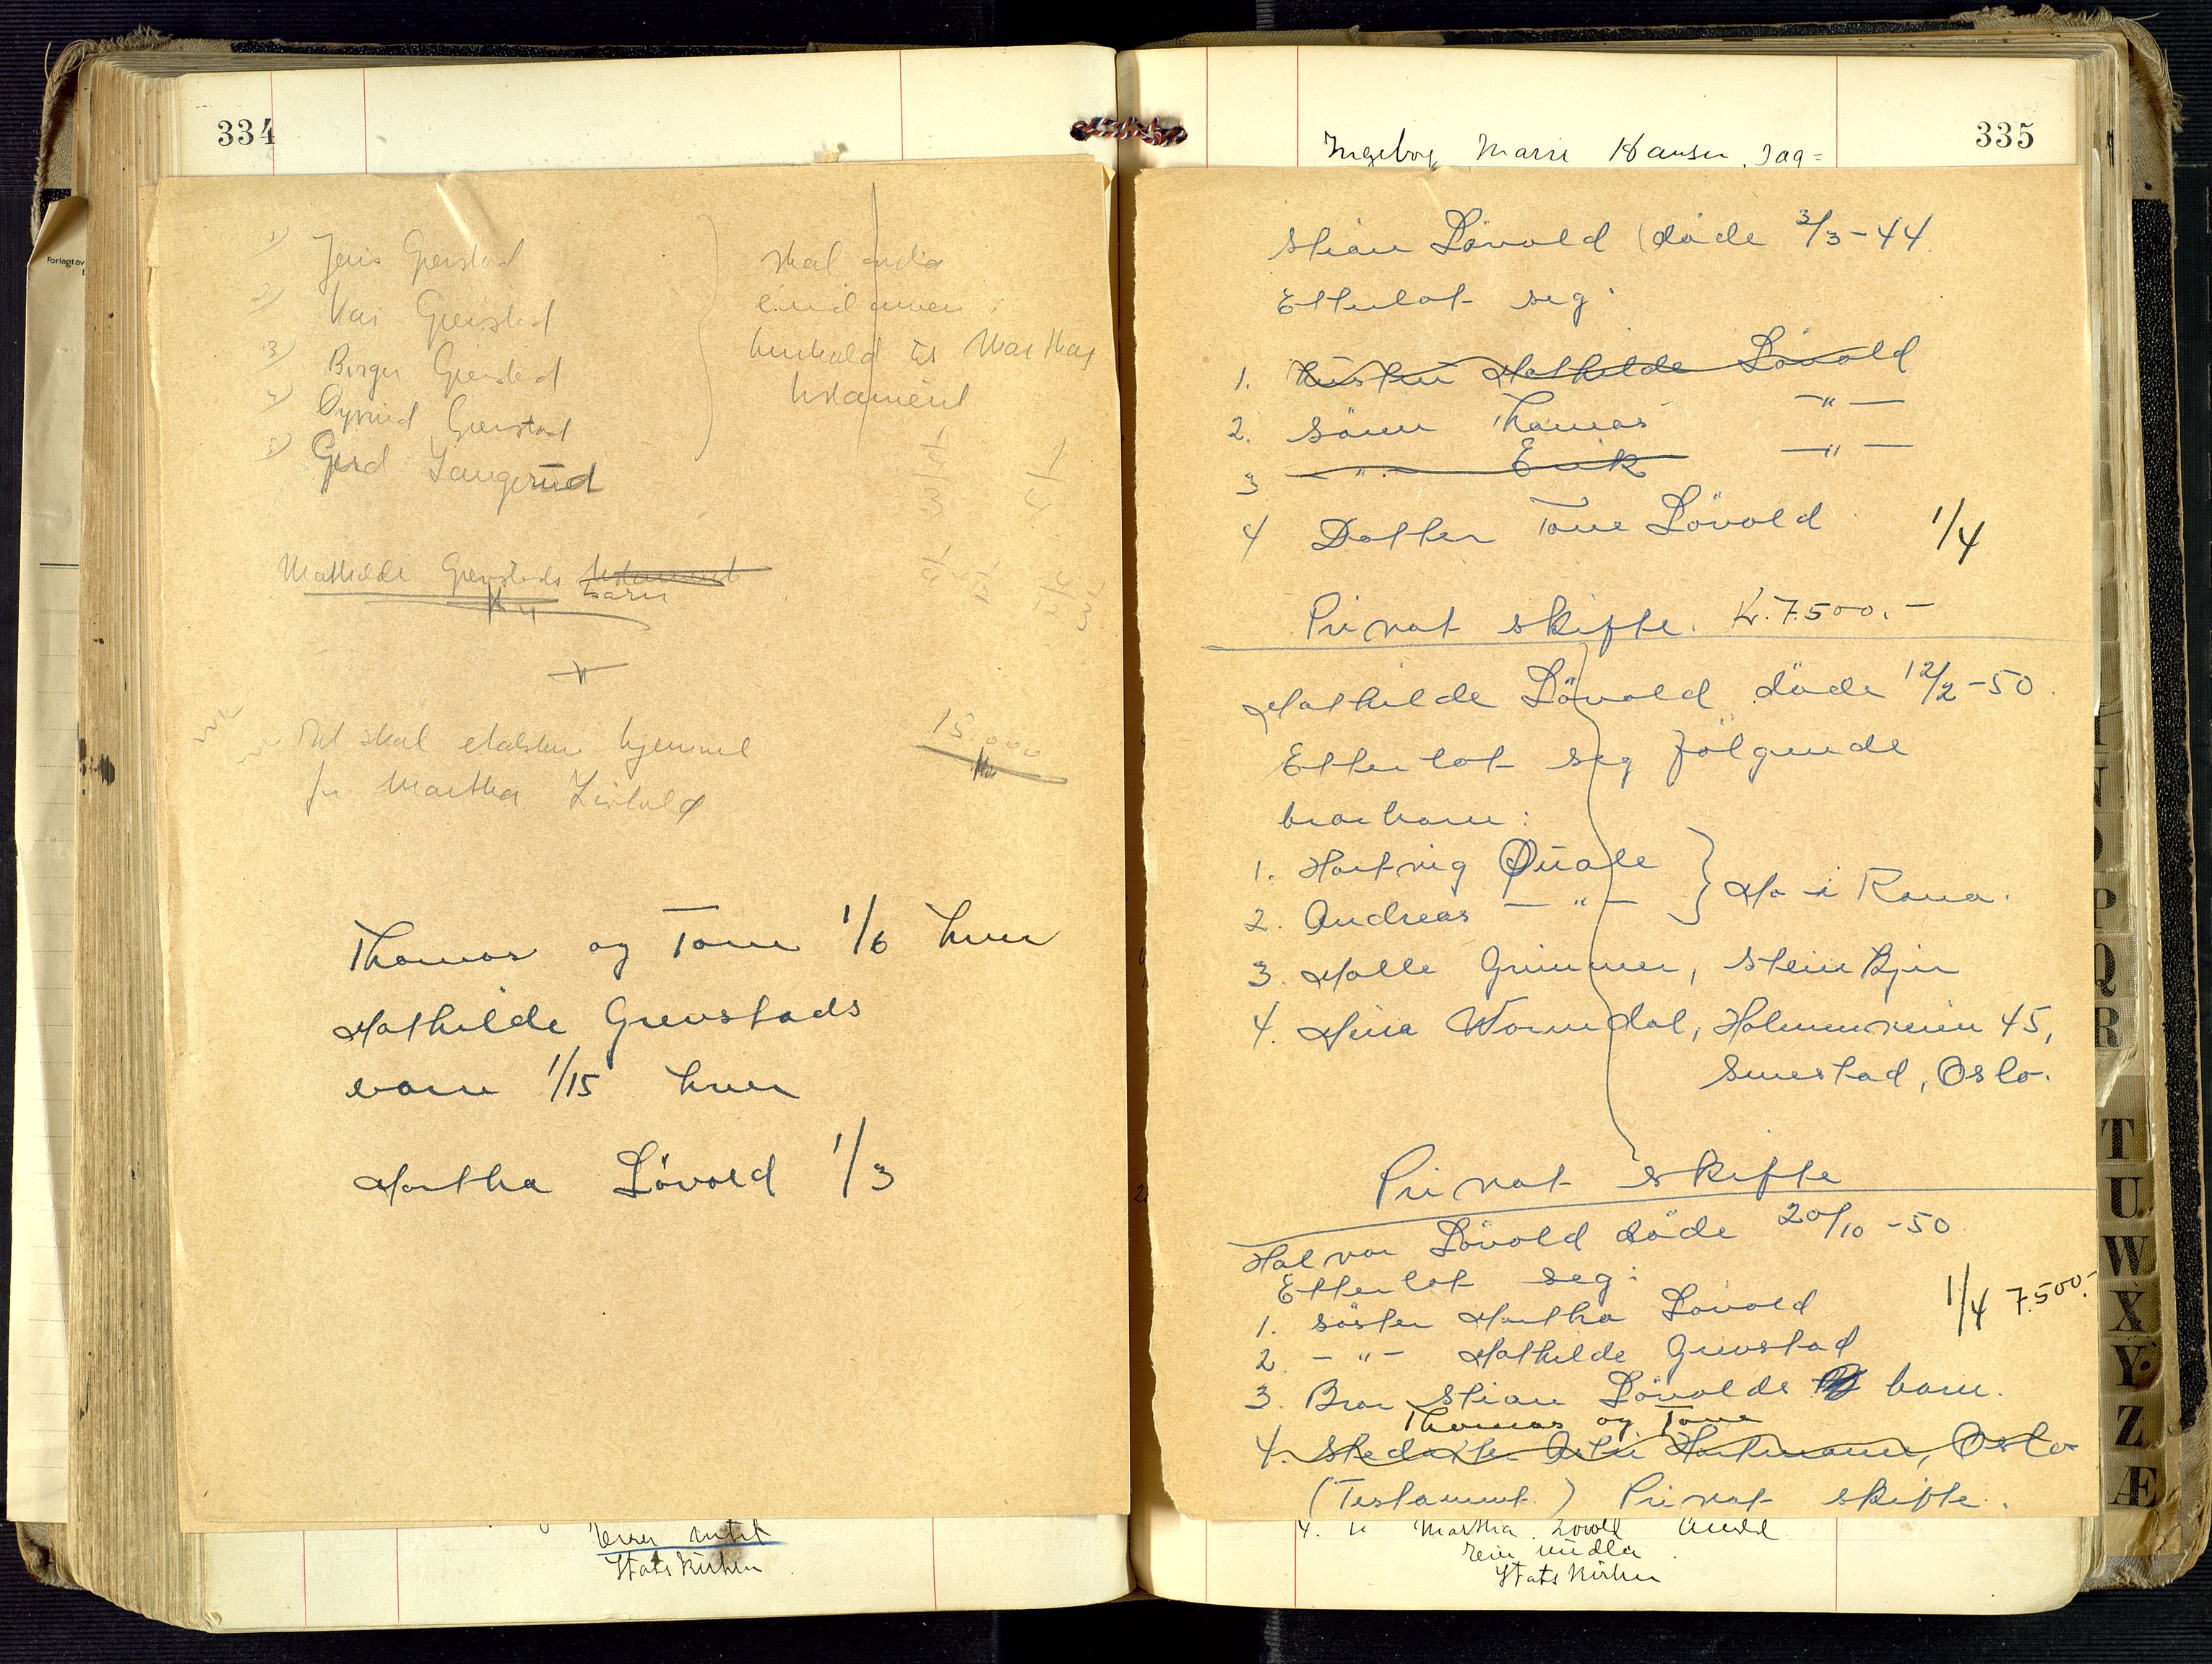 334
Forlagt av
1) Jens Grenstad
2) Kai Grenstad
3) Birger Grenstad
4) Øyvind Grenstad
5) Gerd Langerud
skal
henhold til Marthas
testament
1/3
1/4
Mathilde Grenstads testament
barn
15.000
Det skal etableres hjemmel
for Martha Lövold
Thomas og Tone 1/6 hver
Mathilde Grenstads
barn 1/15 hver
Martha Lövold 1/3
Statskirken
335
Ingeborg Marie Hansen, Dag=
Stian Lövold (døde 3/3-44
Etterlot seg:
1. Hustru Mathilde Lövold
2. Sönn Thomas —"—
3 —"— Erik —"—
4 Datter Tone Lövold 1/4
Privat skifte. Kr. 7.500.-
Mathilde Lövold døde 12/2-50.
Etterlot seg følgende
brorbarn:
1. Hartvig Qvale
2. Andreas —"— } Mo i Rana.
3. Malle Grimmer, Steinkjer
4. Mina Wormdal, Holmenveien 45,
Smestad, Oslo.
Privat skifte
Halvor Lövold døde 20/10-50
Etterlot seg:
1. Söster Martha Lövold 1/4 7.500.-
2. -"- Mathilde Grenstad
3. Bror Stian Lövolds barn.
Thomas og Tone
4. Hartmann, Oslo
(Testament.) Privat skifte.
4. Martha Lovold
rein midler
Statskirken
T
U
W
X
Y
Z
Æ
P
Q
R